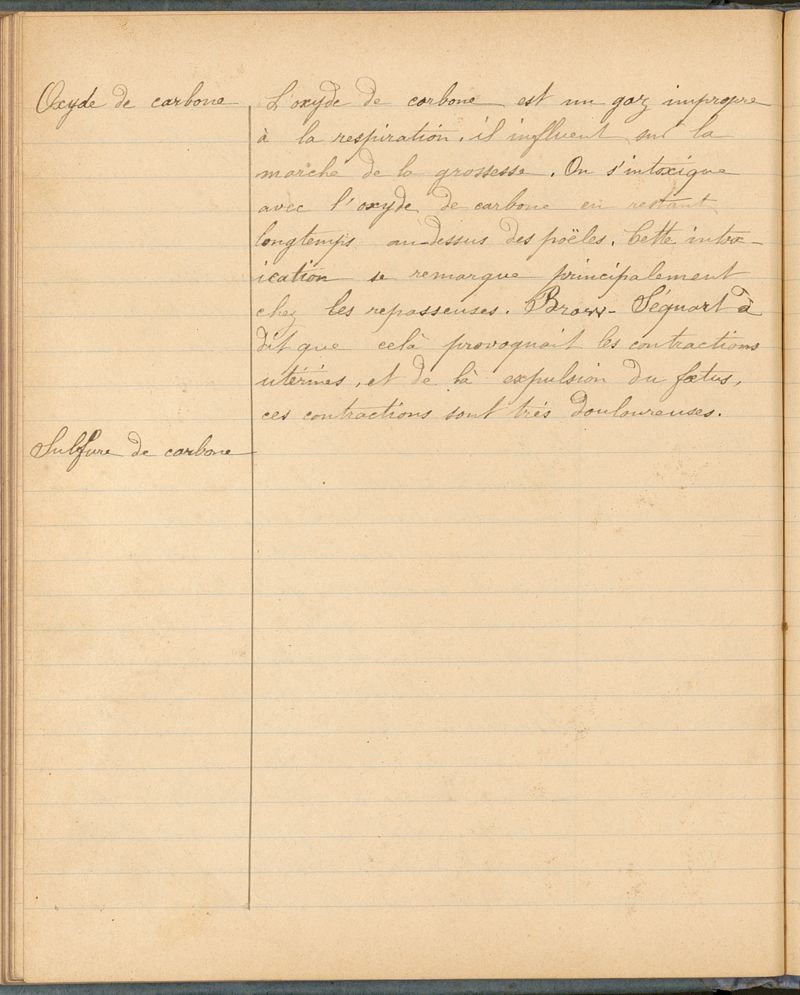 Oxyde de carbone
L'oxyde de carbone est un gaz impropre
à la respiration, il influent sur la
marche de la grossesse. On s'intoxique
avec l'oxyde de carbone en restant
longtemps au-dessus des poëles. Cette intox-
ication se remarque principalement
chez les repasseuses. Brown-Séquart à
dit que celà provoquait les contractions
utérines, et de là expulsion du fœtus,
ces contractions sont très douloureuses.
Sulfure de carbone